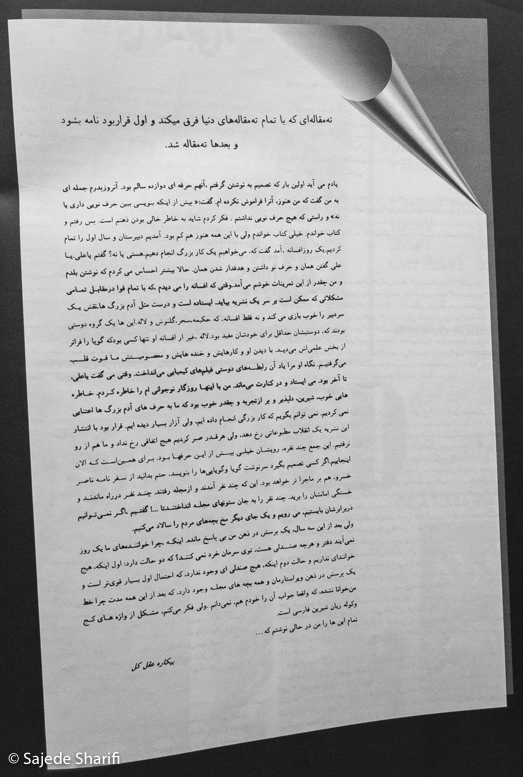 نه‌مقاله‌ای که با تمام نه‌مقاله‌های دنیا فرق میکند و اول قراربود نامه بشود
و بعدها نه‌مقاله شد.
یادم می آید اولین بار که تصمیم به نوشتن گرفتم ،آنهم حرفه ای دوازده سالم بود. آنروزپدرم جمله ای
به من گفت که من هنوز، آنرا فراموش نکرده ام. گفت:« بیش از اینکه بنویسی ببین حرف نویی داری یا
نه» و راستی که هیچ حرف نویی نداشتم . فکر کردم شاید به خاطر خالی بودن ذهنم است. پس رفتم و
کتاب خواندم. خیلی کتاب خواندم ولی با این همه هنوز هم کم بود. آمدیم دبیرستان و سال اول را تمام
کردیم.یک روزافسانه ،آمد گفت که، می‌خواهیم یک کار بزرگ انجام دهیم.هستی یا نه؟ گفتم یاعلی.یا
علی گفتن همان و حرف نو داشتن و هدفدار شدن همان. حالا بیشتر احساس می کردم که نوشتن بلدم
و من چقدر از این تمرینات خوشم می‌آمد.وقتی که افسانه را می دیدم ،که با تمام قوا درمقابل تمامی
مشکلاتی که ممکن است بر سر یک نشریه بیاید، ایستاده است و درست مثل آدم بزرگ ها،نقش یک
سردبیر را خوب بازی می کند و نه فقط افسانه، که حکیمه،سحر،گلنوش و لاله این ها یک گروه دوستی
بودند که، دوستیشان حداقل برای خودشان مفید بود.لاله ،غیر از افسانه او تنها کسی بودکه گویا را فراتر
از بخش علمی‌اش می‌دید. با دیدن او و کارهایش و خنده هایش و معصومیتش ما قوت قلب
می‌گرفتیم. نگاه او مرا یاد آن رابطه‌های دوستی فیلم‌های کیمیایی می‌انداخت. وقتی می گفت یاعلی،
تا آخر بود. می ایستاد و در کنارت می‌ماند. من با اینها روزگار نوجوانی ام را خاطره کردم. خاطره
هایی خوب، شیرین، دلپذیر و پر ازتجربه و چقدر خوب بود که ما به حرف های آدم بزرگ ها اعتنایی
نمی کردیم. نمی توانم بگویم که کار بزرگی انجام داده ایم، ولی آزار بسیار دیده ایم. قرار بود با انتشار
این نشریه یک انقلاب مطبوعاتی رخ دهد، ولی هرقدر صبر کردیم هیچ اتفاقی رخ نداد و ما هم از رو
نرفتیم. این جمع چند نفره، رویشان خیلی بیش از این حرفها بود. برای همین‌است که الان
اینجاییم.اگر کسی تصمیم بگیرد سرنوشت گویا وگویایی‌ها را بنویسد، حتم بدانید از سفر نامه ناصر
خسرو، هم پر ماجرا تر خواهد بود. این که چند نفر آمدند و ازمجله رفتند. چند نفر درراه ماندند و
خستگی امانشان را برید. چند نفر را به جان ستونهای مجله انداختند.تا ...! گفتیم ،اگر نمی‌توانیم
دربرابرشان بایستیم، می رویم و یک جای دیگر مخ بچه‌های مردم را سالاد می‌کنیم.
ولی بعد از این سه سال، یک پرسش در ذهن من بی پاسخ مانده. اینکه ،چرا خواننده‌های ما یک روز
نمی‌آیند دفتر و هرچه صندلی هست، توی سرمان خرد نمی کنند؟ که دو حالت دارد: اول اینکه، هیچ
خواننده‌ای نداریم و حالت دوم اینکه، هیچ صندلی ای وجود ندارد، که احتمال اول بسیار قوی‌تر است و
یک پرسش در ذهن ویراستارمان و همه بچه های مجله وجود دارد، که بعد از این همه مدت چرا خط
من‌خوانا نشده، که واقعا جواب آن را خودم هم، نمی‌دانم .ولی فکر می‌کنم، مشکل از واژه های کج
وکوله زبان شیرین فارسی است.
تمام این ها را من در حالی نوشتم که ...
بیکاره عقل کل
© Sajede Sharifi